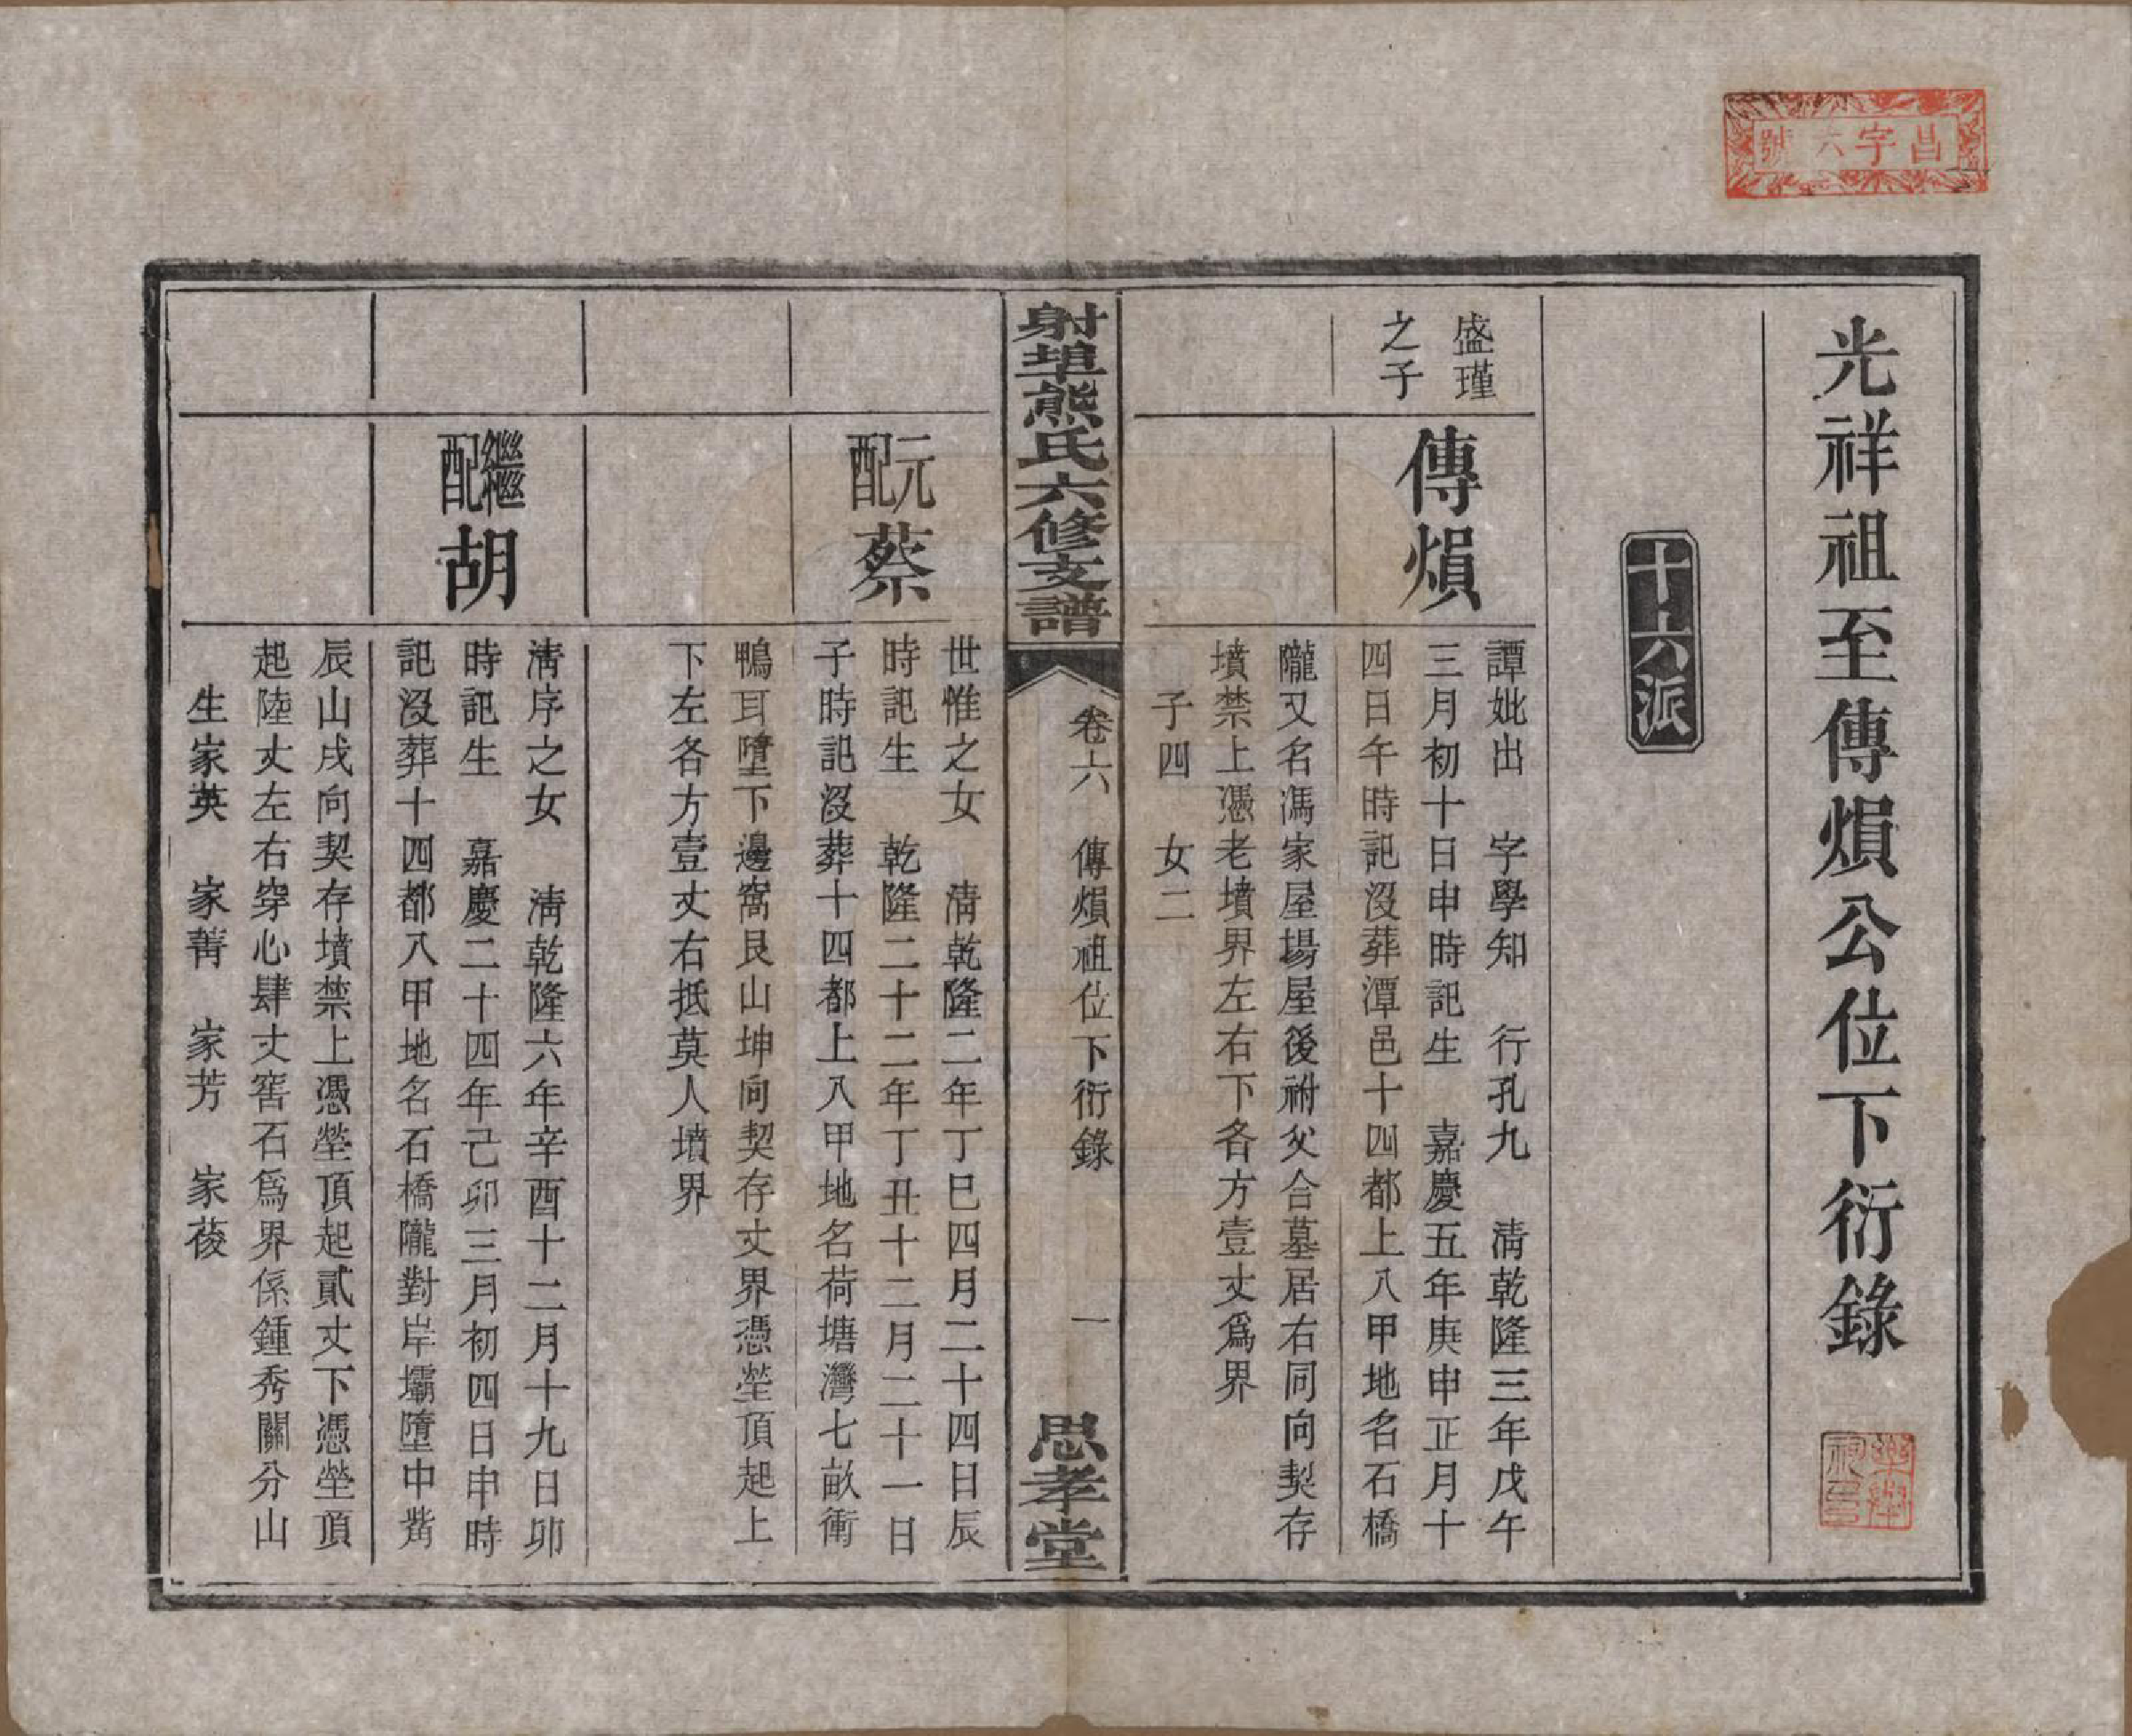 昌字六號
光祥祖至傳熉公位下衍錄
十六派
盛瑾
之子
傳熉
譚妣出　字學知　行孔九　清乾隆三年戊午
三月初十日申時記生　嘉慶五年庚申正月十
四日午時記沒葬潭邑十四都上八甲地名石橋
隴又名馮家屋場屋後祔父合墓居右同向契存
墳禁上憑老墳界左右下各方壹丈爲界
子四　女二
射埠熊氏六修支譜
卷六　傳熉祖位下衍錄
一
思孝堂
元配
蔡
世惟之女　清乾隆二年丁巳四月二十四日辰
時記生　乾隆二十二年丁丑十二月二十一日
子時記沒葬十四都上八甲地名荷塘灣七畝衝
鴨耳墮下邊窩艮山坤向契存丈界憑塋頂起上
下左各方壹丈右抵莫人墳界
繼配
胡
清序之女　清乾隆六年辛酉十二月十九日卯
時記生　嘉慶二十四年己卯三月初四日申時
記沒葬十四都八甲地名石橋隴對岸壩墮中嘴
辰山戌向契存墳禁上憑塋頂起貳丈下憑塋頂
起陸丈左右穿心肆丈窖石爲界係鍾秀關分山
生家英　家菁　家芳　家葰